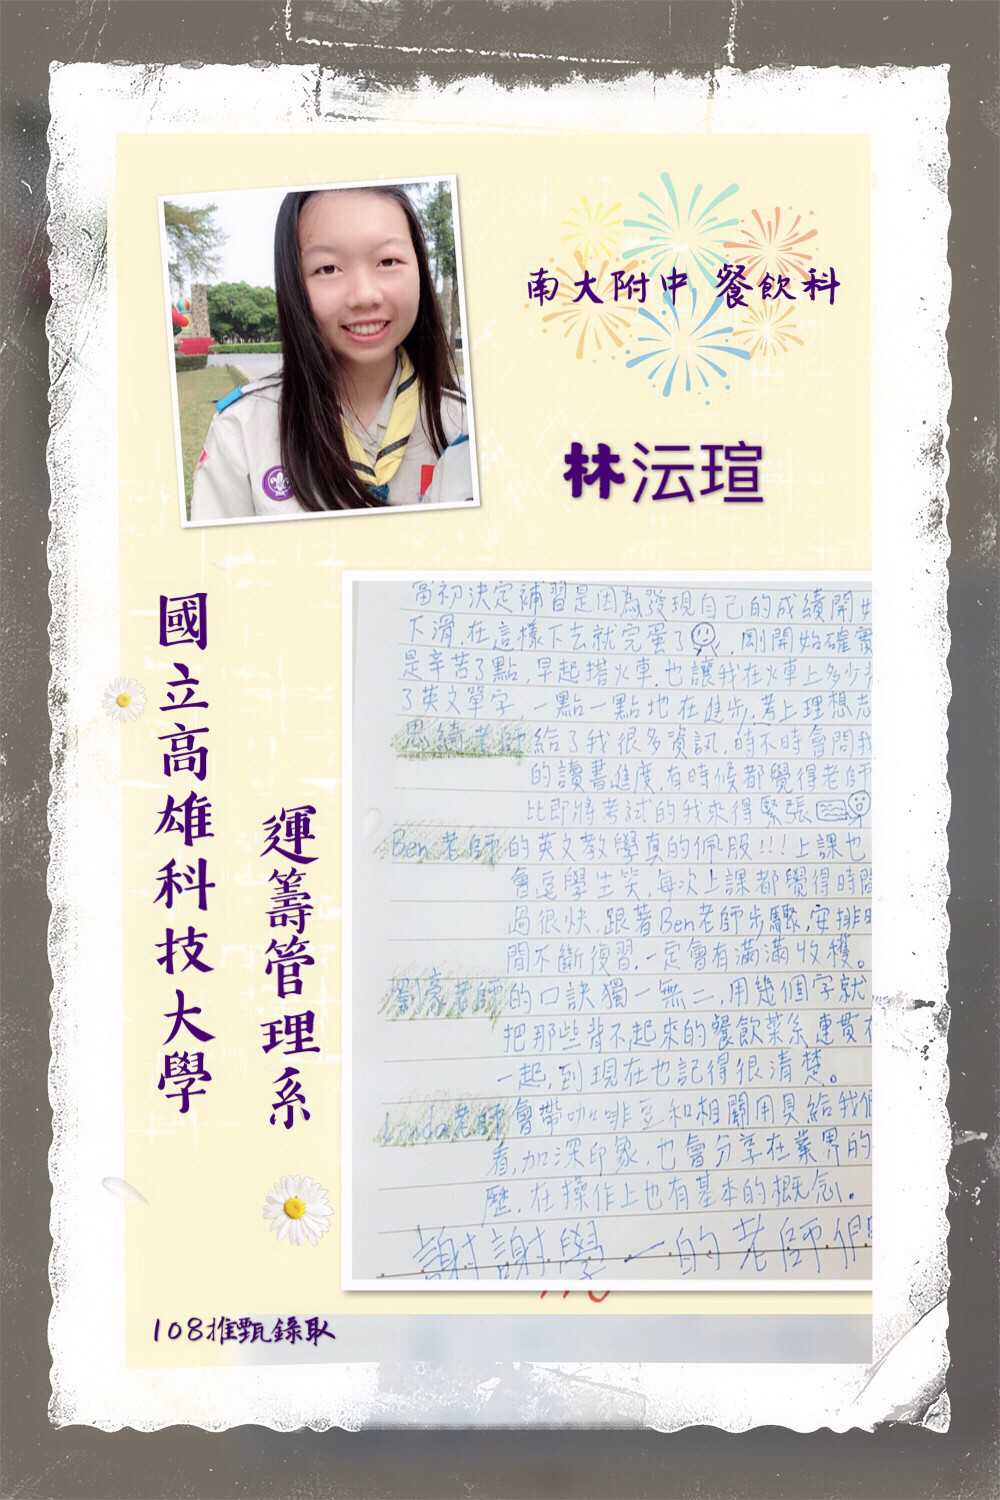 南大附中 餐飲科
林沄瑄
國立高雄科技大學
運籌管理系
當初決定補習是因為發現自己的成績開
下滑,在這樣下去就完蛋了,剛開始確實
是辛苦了點,早起搭火車,也讓我在火車上多少
了英文單字 一點一點地在進步,考上理想
思綺老師給了我很多資訊,時不時會問我
的讀書進度,有時候都覺得老師
比即將考試的我來得緊張
Ben老師的英文教學真的佩服!!!上課也
會逗學生笑,每次上課都覺得時間
過很快,跟著Ben老師步驟,安排時
間不斷復習,一定會有滿滿收穫。
劉豪老師的口訣獨一無二,用幾個字就
把那些背不起來的餐飲菜系,連貫在
一起,到現在也記得很清楚。
老師會帶咖啡豆和相關用具給我們
看,加深印象,也會分享在業界的
歷,在操作上也有基本的概念。
謝謝學一的老師們
108推甄錄取